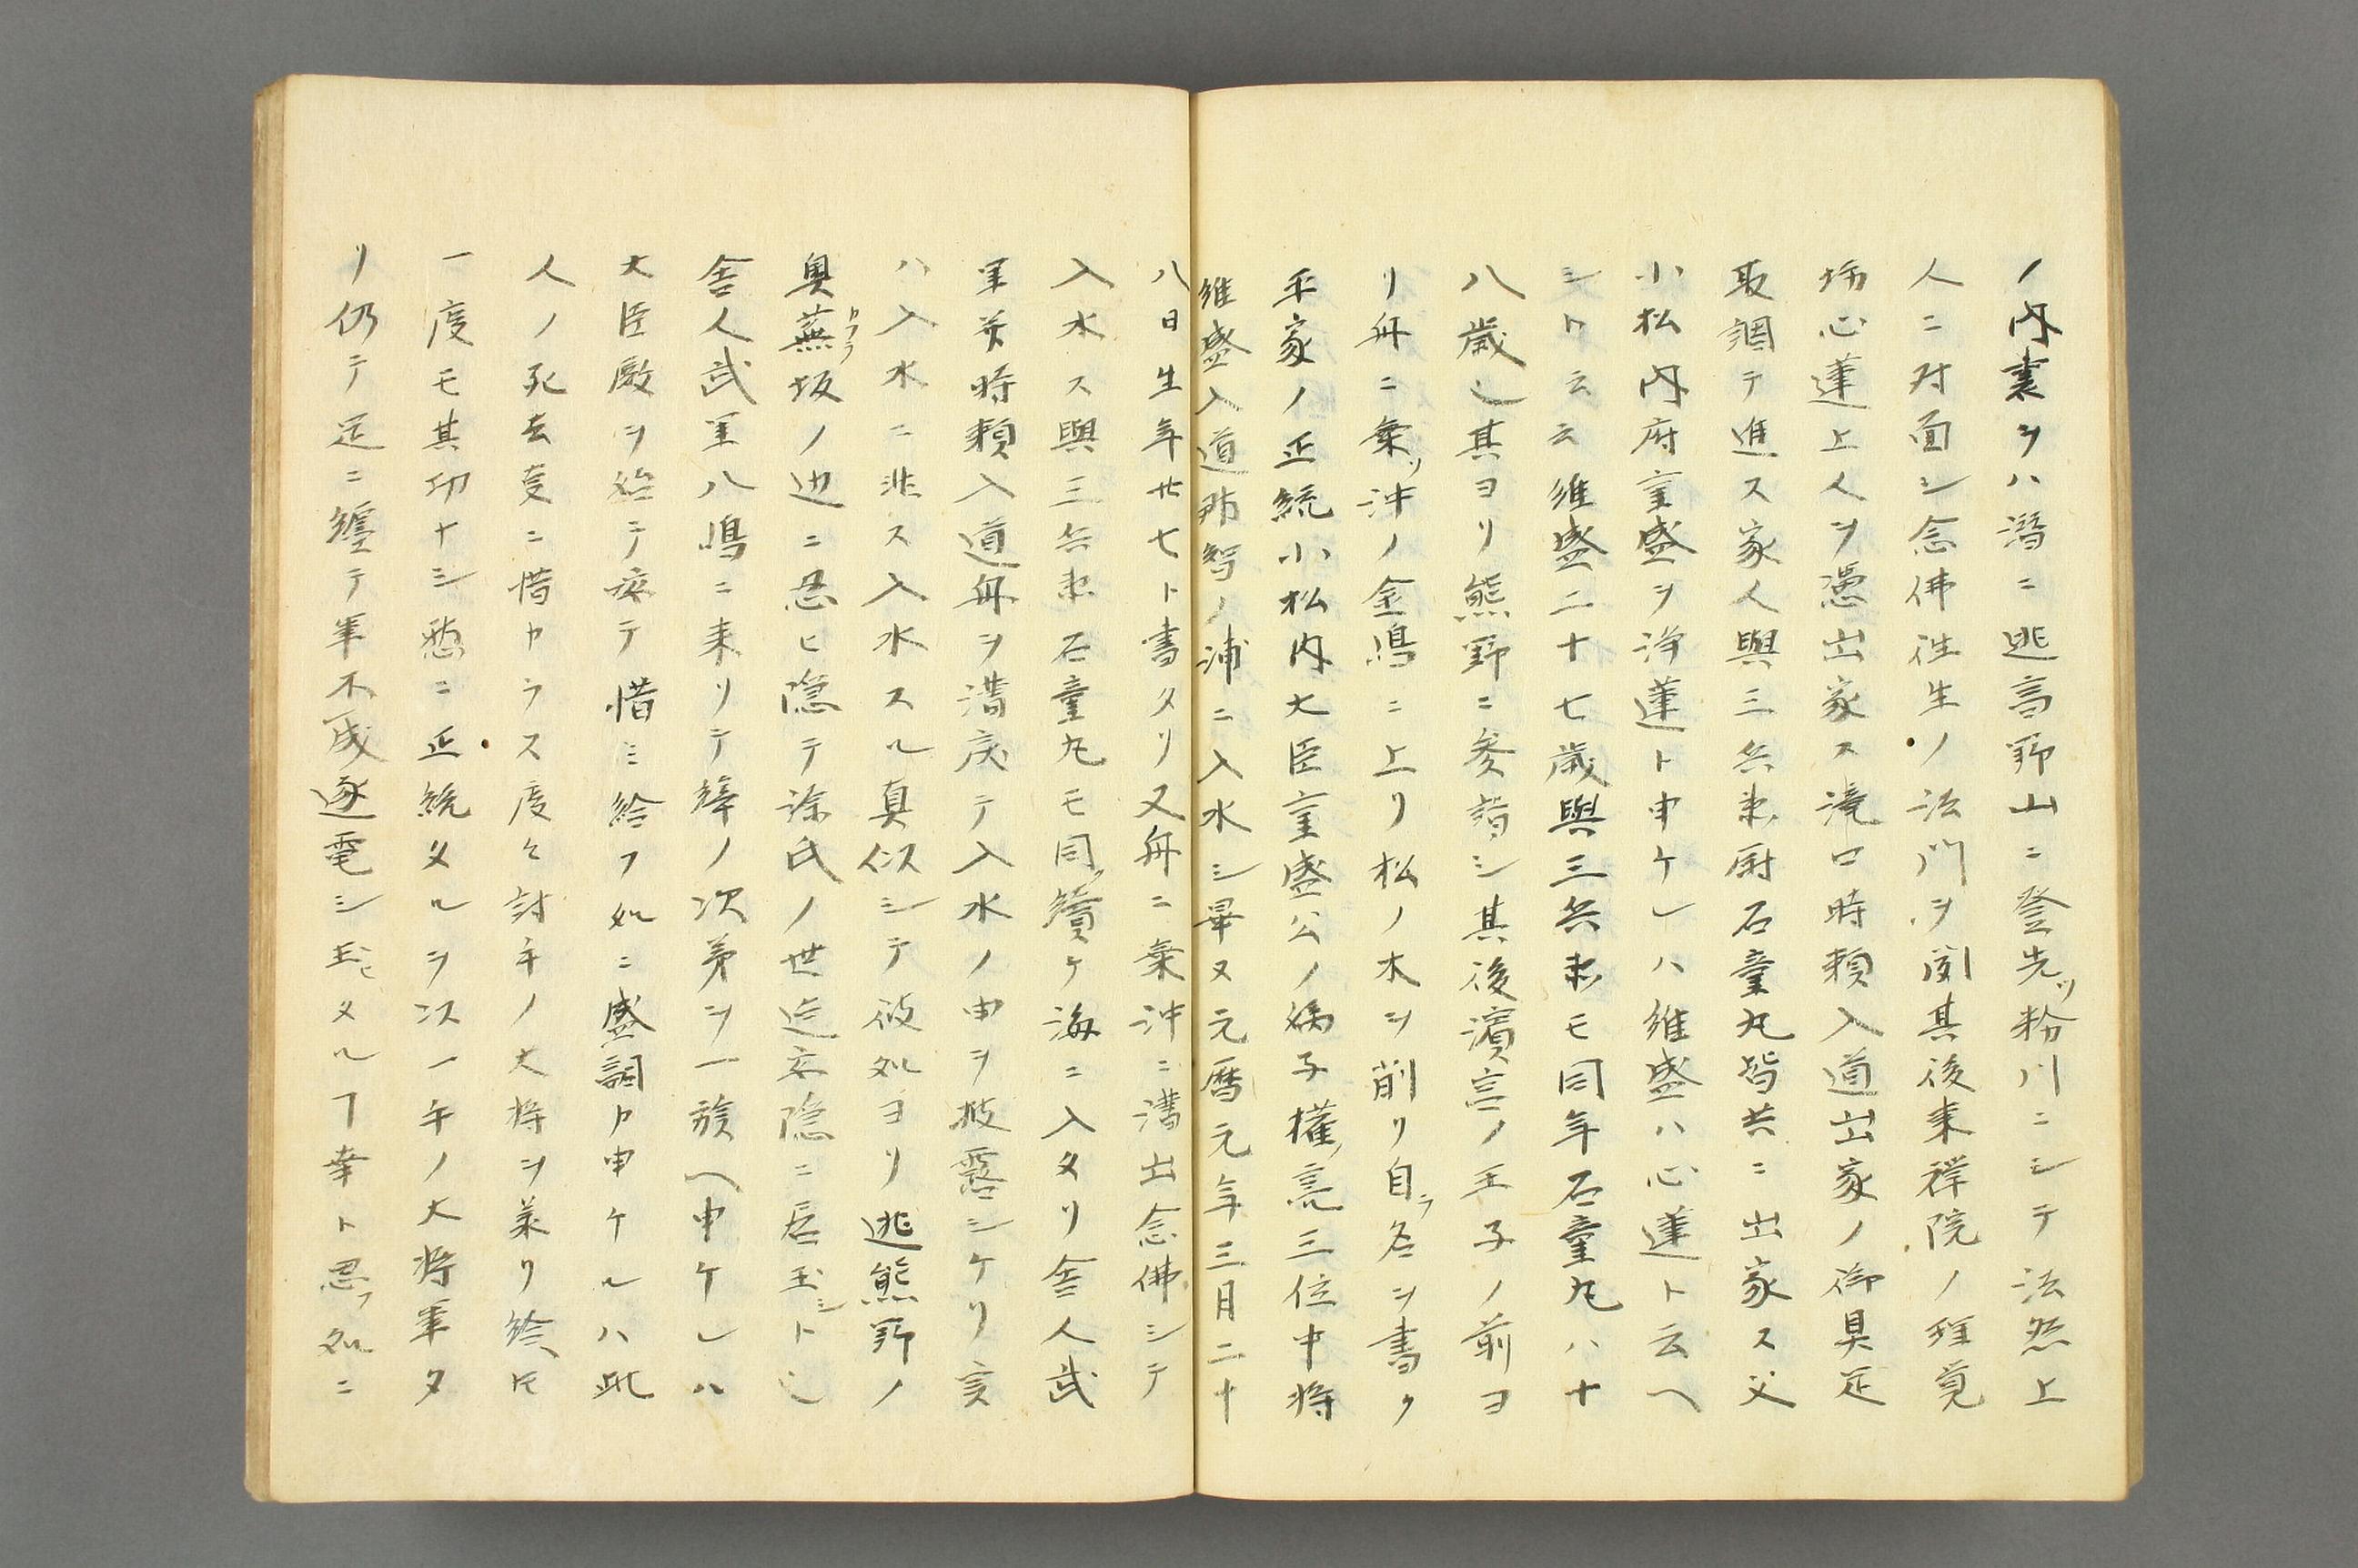 ノ内裏ヲハ潜ニ逃高野山ニ登先ツ粉川ニシテ法然上
人ニ対面シ念佛往生ノ法門ヲ聞其後来禅院ノ理覚
坊心蓮上人ヲ憑出家ス滝口時頼入道出家ノ御具足
取調テ進ス家人與三兵衛尉石童丸皆共ニ出家ス父
小松内府重盛ヲ浄蓮ト申ケレハ維盛ハ心蓮ト云ヘ
シト云云維盛二十七歳與三兵衛モ同年石童丸ハ十
八歳也其ヨリ熊野ニ参詣シ其後濱宮ノ王子ノ前ヨ
リ舟ニ乗リ沖ノ金嶋ニ上リ松ノ木ヲ削リ自ラ名ヲ書ク
平家ノ正統小松内大臣重盛公ノ嫡子権亮三位中将
維盛入道那智ノ浦ニ入水シ畢ヌ元暦元年三月二十
八日生年廿七ト書タリ又舟ニ乗沖ニ漕出念佛シテ
入水ス與三兵衛石童丸モ同ク續ケ海ニ入タリ舎人武
里并時頼入道舟ヲ漕戻テ入水ノ由ヲ披露シケリ実
ハ入水ニ非ス入水スル真似シテ彼処ヨリ逃熊野ノ
奥蕪坂ノ辺ニ忍ヒ隠テ源氏ノ世迄不隠ニ居玉シト也
舎人武里八嶋ニ来リテ舟ノ次第ヲ一族ヘ申ケレハ
大臣殿ヲ始テ哀テ惜ミ給フ処ニ盛詞カ申ケルハ此
人ノ死去更ニ惜カラス度々討手ノ大将ヲ承リ給ヘトモ
一度モ其功ナシ愁ニ正統タルヲ以一年ノ大将軍タ
リ仍テ足ニ纏テ軍不成逐電シ玉ヒタルコト幸ト思フ処ニ